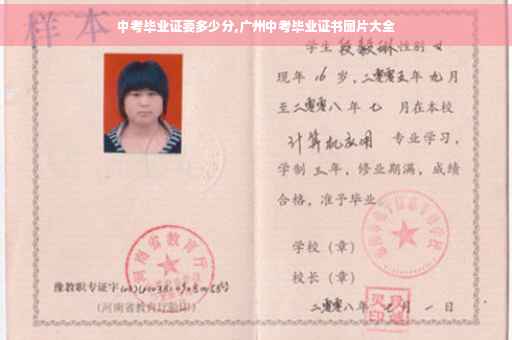 中考毕业证要多少分,广州中考毕业证书图片大全
样本
学生段毅琳性别女
现年16岁，二零零五年九月
至二零零八年七月在本校
计算机应用 专业学习，
学制三年，修业期满，成绩
合格，准予毕业
学校（章）
校长（章）
二零零八年七月一日
河南省教育厅
豫教职专证字
（河南省教育厅验印）